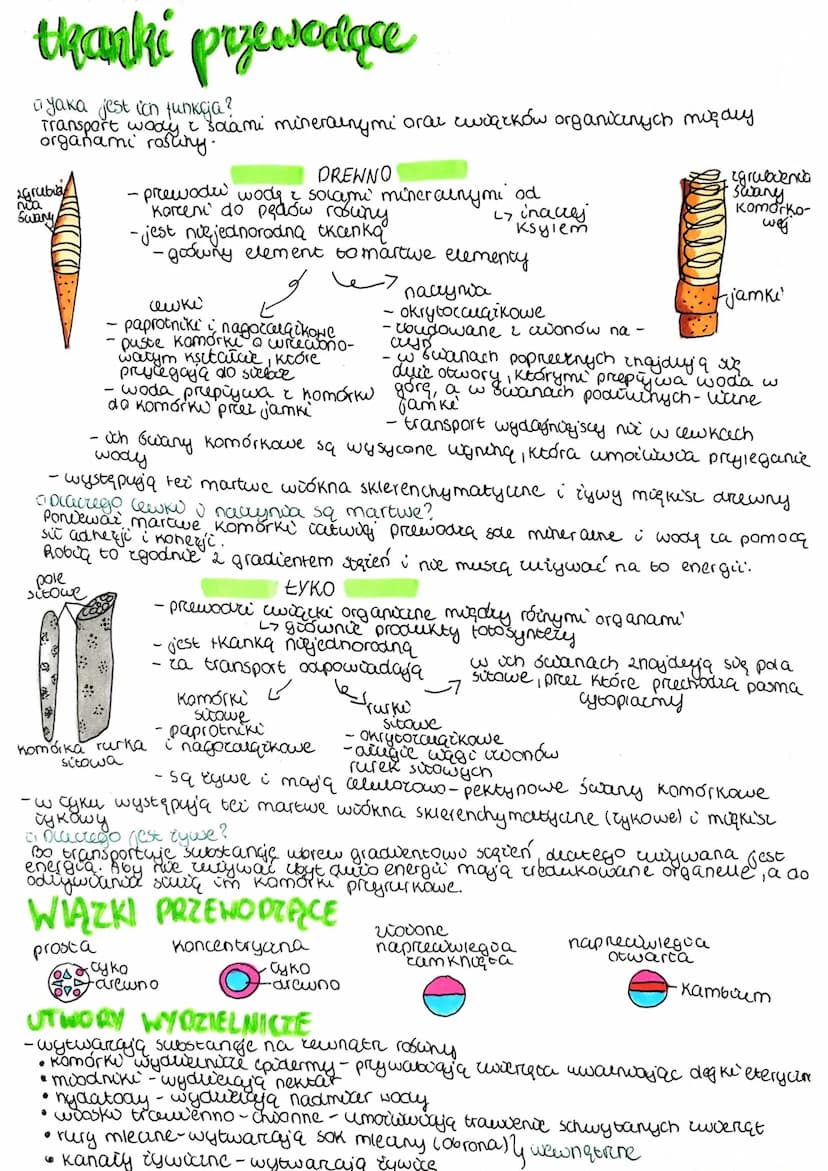 tkanki przewodzące
Jaka jest ich funkcja?
Transport wody z solami mineralnymi oraz związków organicznych między
organami rośliny.
DREWNO
zgrubie
nia
ściany
- przewodzi wodę z solami mineralnymi od
korzeni do pędów rośliny
↳ inaczej
ksylem
- jest niejednorodną tkanką
- główny element to martwe elementy
zgrubienia
ściany
komórko-
wej
jamki
cewki
- paprotniki i nagozalążkowe
- puste komórki o wrzeciono-
watym kształcie, które
przylegają do siebie
- woda przepływa z komórki
do komórki przez jamki
naczynia
- okrytozalążkowe
- zbudowane z członów na-
czyń
- w ścianach poprzecznych znajdują się
duże otwory, którymi przepływa woda w
górę, a w ścianach podłużnych - liczne
jamki
- transport wydajniejszy niż w cewkach
- ich ściany komórkowe są wysycone ligniną, która umożliwia przyleganie
wody
- występują też martwe włókna sklerenchymatyczne i żywy miękisz drzewny
Dlaczego cewki i naczynia są martwe?
Ponieważ martwe komórki łatwiej przewodzą sole mineralne i wodę za pomocą
sił adhezji i kohezji.
Robią to zgodnie z gradientem stężeń i nie muszą używać na to energii.
ŁYKO
pole
sitowe
komórka rurka
sitowa
- przewodzi związki organiczne między różnymi organami
↳ głównie produkty fotosyntezy
- jest tkanką niejednorodną
- za transport odpowiadają
w ich ścianach znajdują się pola
sitowe, przez które przechodzą pasma
cytoplazmy
komórki
sitowe
- paprotniki
i nagozalążkowe
rurki
sitowe
- okrytozalążkowe
- długie ciągi członów
rurek sitowych
- są żywe i mają celulozowo-pektynowe ściany komórkowe
- w łyku występują też martwe włókna sklerenchymatyczne (łykowe) i miękisz
łykowy
Dlaczego jest żywe?
Bo transportuje substancje wbrew gradientowu stężeń, dlatego używana jest
energia. Aby nie używać zbyt dużo energii mają zredukowane organelle, a do
odżywiania służą im komórki przyrurkowe.
WIĄZKI PRZEWODZĄCE
prosta
łyko
drewno
koncentryczna
łyko
drewno
złożone
naprzeciwległa
zamknięta
naprzeciwległa
otwarta
kambium
UTWORY WYDZIELNICZE
- wytwarzają substancje na zewnątrz rośliny
• komórki wydzielnicze epidermy - przywabiają zwierzęta uwalniając olejki eteryczn
• miodniki - wydzielają nektar
• hydatody - wydzielają nadmiar wody
• włoski trawienno-chłonne - umożliwiają trawienie schwytanych zwierząt
• rury mleczne - wytwarzają sok mleczny (obrona) } wewnętrzne
• kanały żywiczne - wytwarzają żywicę